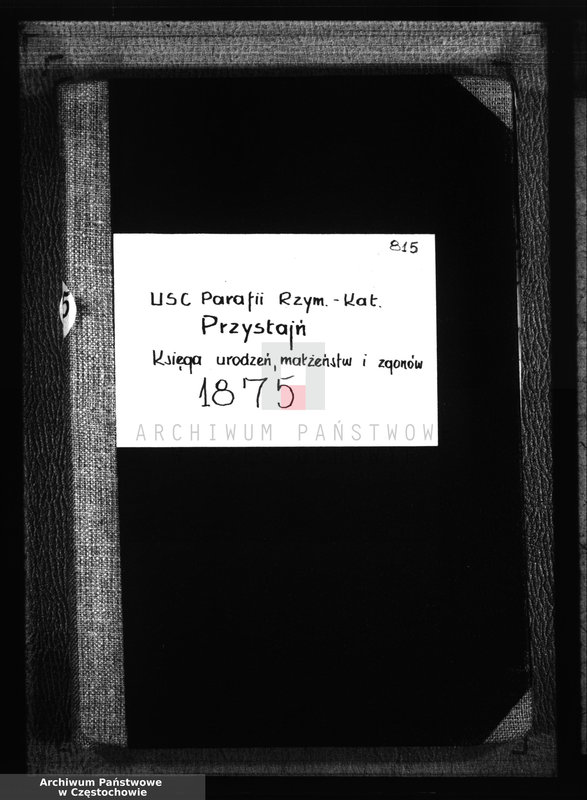 815
USC Parafii Rzym.-Kat.
Przystajń
Księga urodzeń, małżeństw i zgonów
1875
ARCHIWUM PAŃSTWOW
5
Archiwum Państwowe
w Częstochowie